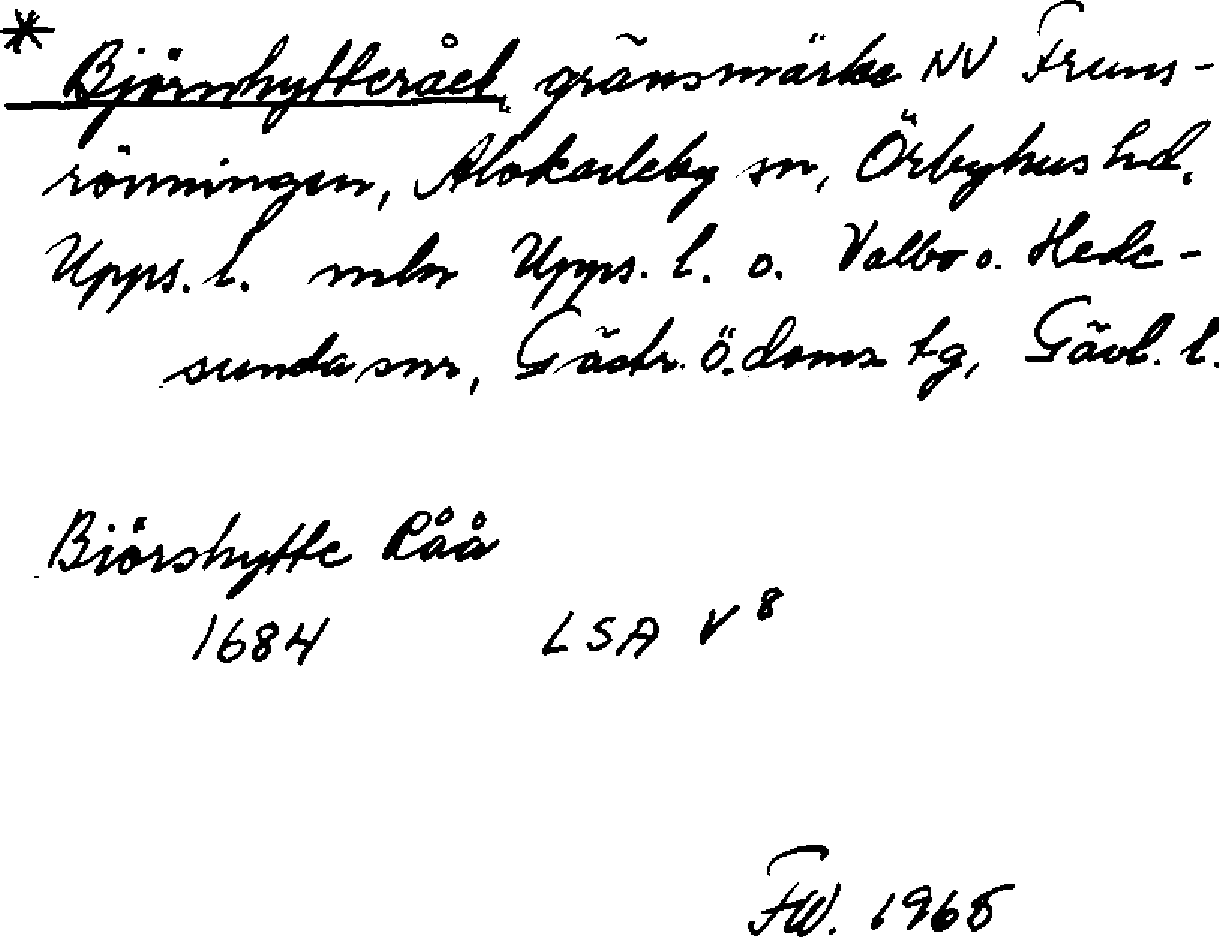 * Björnhytteråel, gränsmärke NV Fruns-
rönningen, Älvkarleby sn, Örbyhus hd.
Upps. l. mln Upps. l. o. Valbo o. Hede-
sunda snr, Gästr. ö. doms tg, Gävl. l.
Biörshytte Råå
1684 LSA V 8
FW. 1968